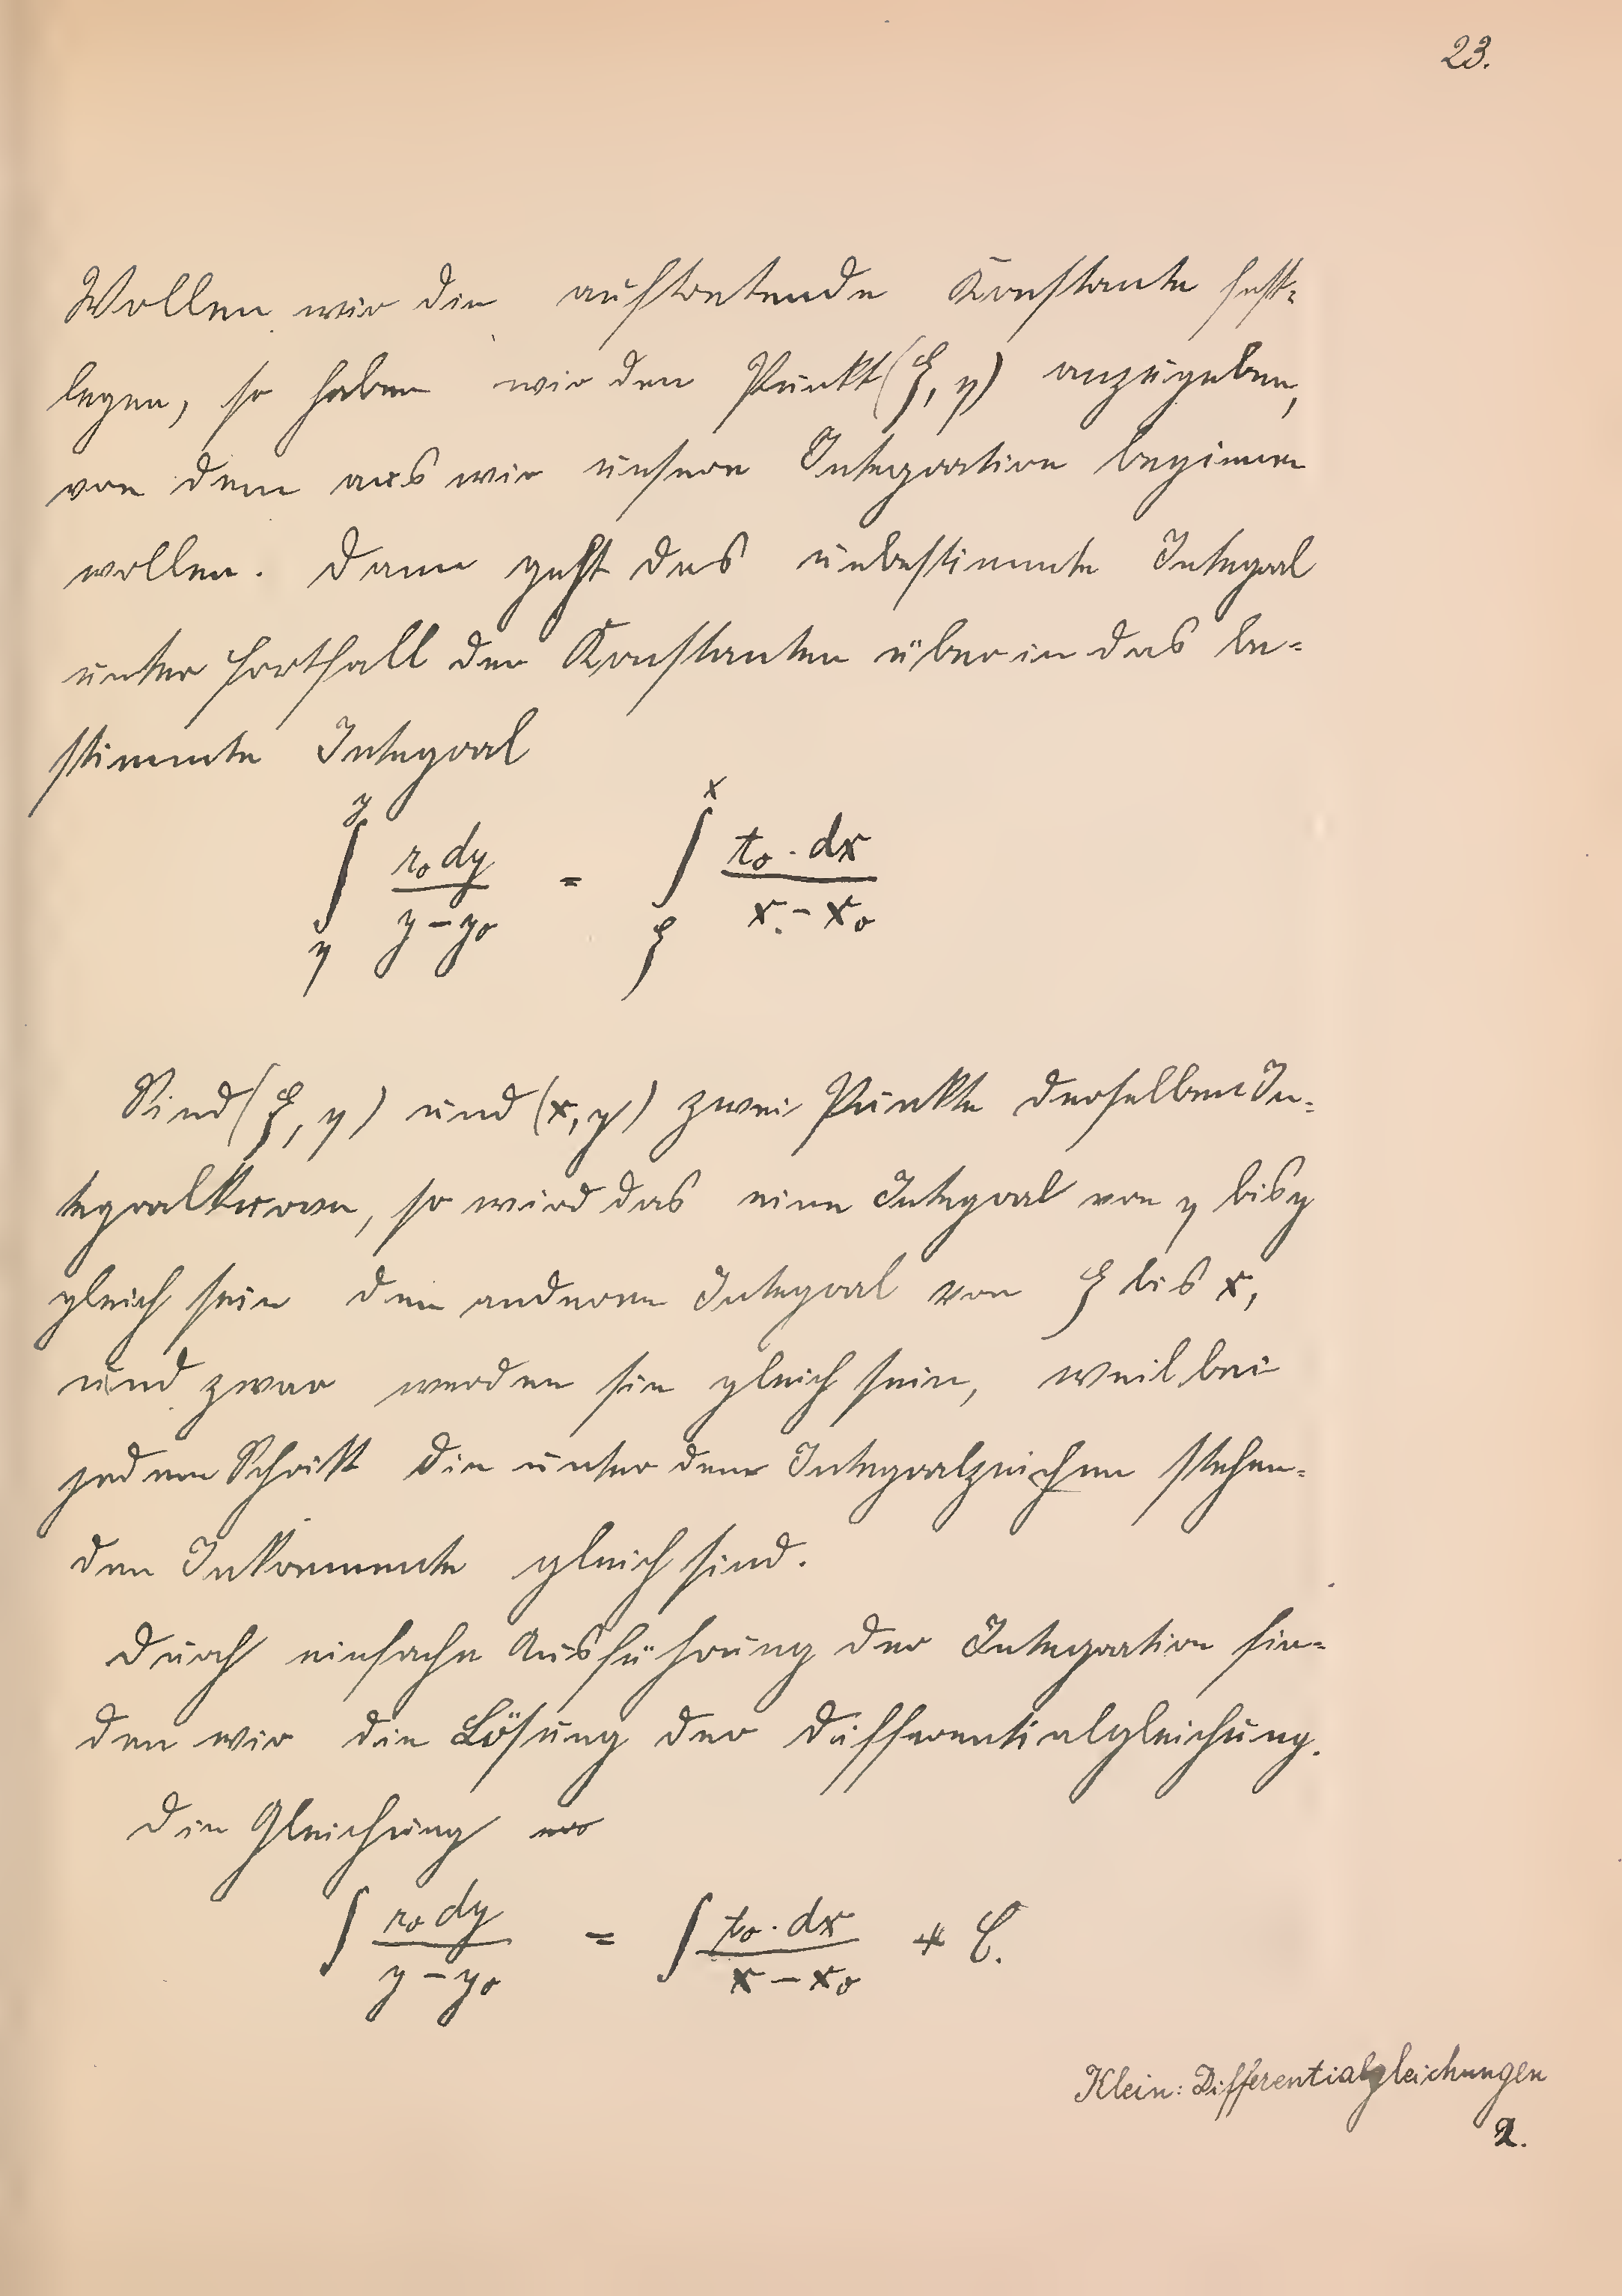 23.
Wollen wir die auftretende Konstante fest-
legen, so haben wir den Punkt (ξ, η) anzugeben,
von dem aus wir unsere Integration beginnen
wollen. Dann geht das unbestimmte Integral
unter Fortfall der Konstanten über in das be-
stimmte Integral
∫_η^y r₀ dy / (y − y₀) = ∫_ξ^x t₀ · dx / (x − x₀)
Sind (ξ, η) und (x, y) zwei Punkte derselben In-
tegralkurve, so wird das eine Integral von η bis y
gleich sein dem anderen Integral von ξ bis x,
und zwar werden sie gleich sein, weil bei
jedem Schritt die unter dem Integralzeichen stehen-
den Inkremente gleich sind.
Durch einfache Ausführung der Integration fin-
den wir die Lösung der Differentialgleichung.
Die Gleichung war
∫ r₀ dy / (y − y₀) = ∫ t₀ · dx / (x − x₀) + C.
Klein: Differentialgleichungen
2.